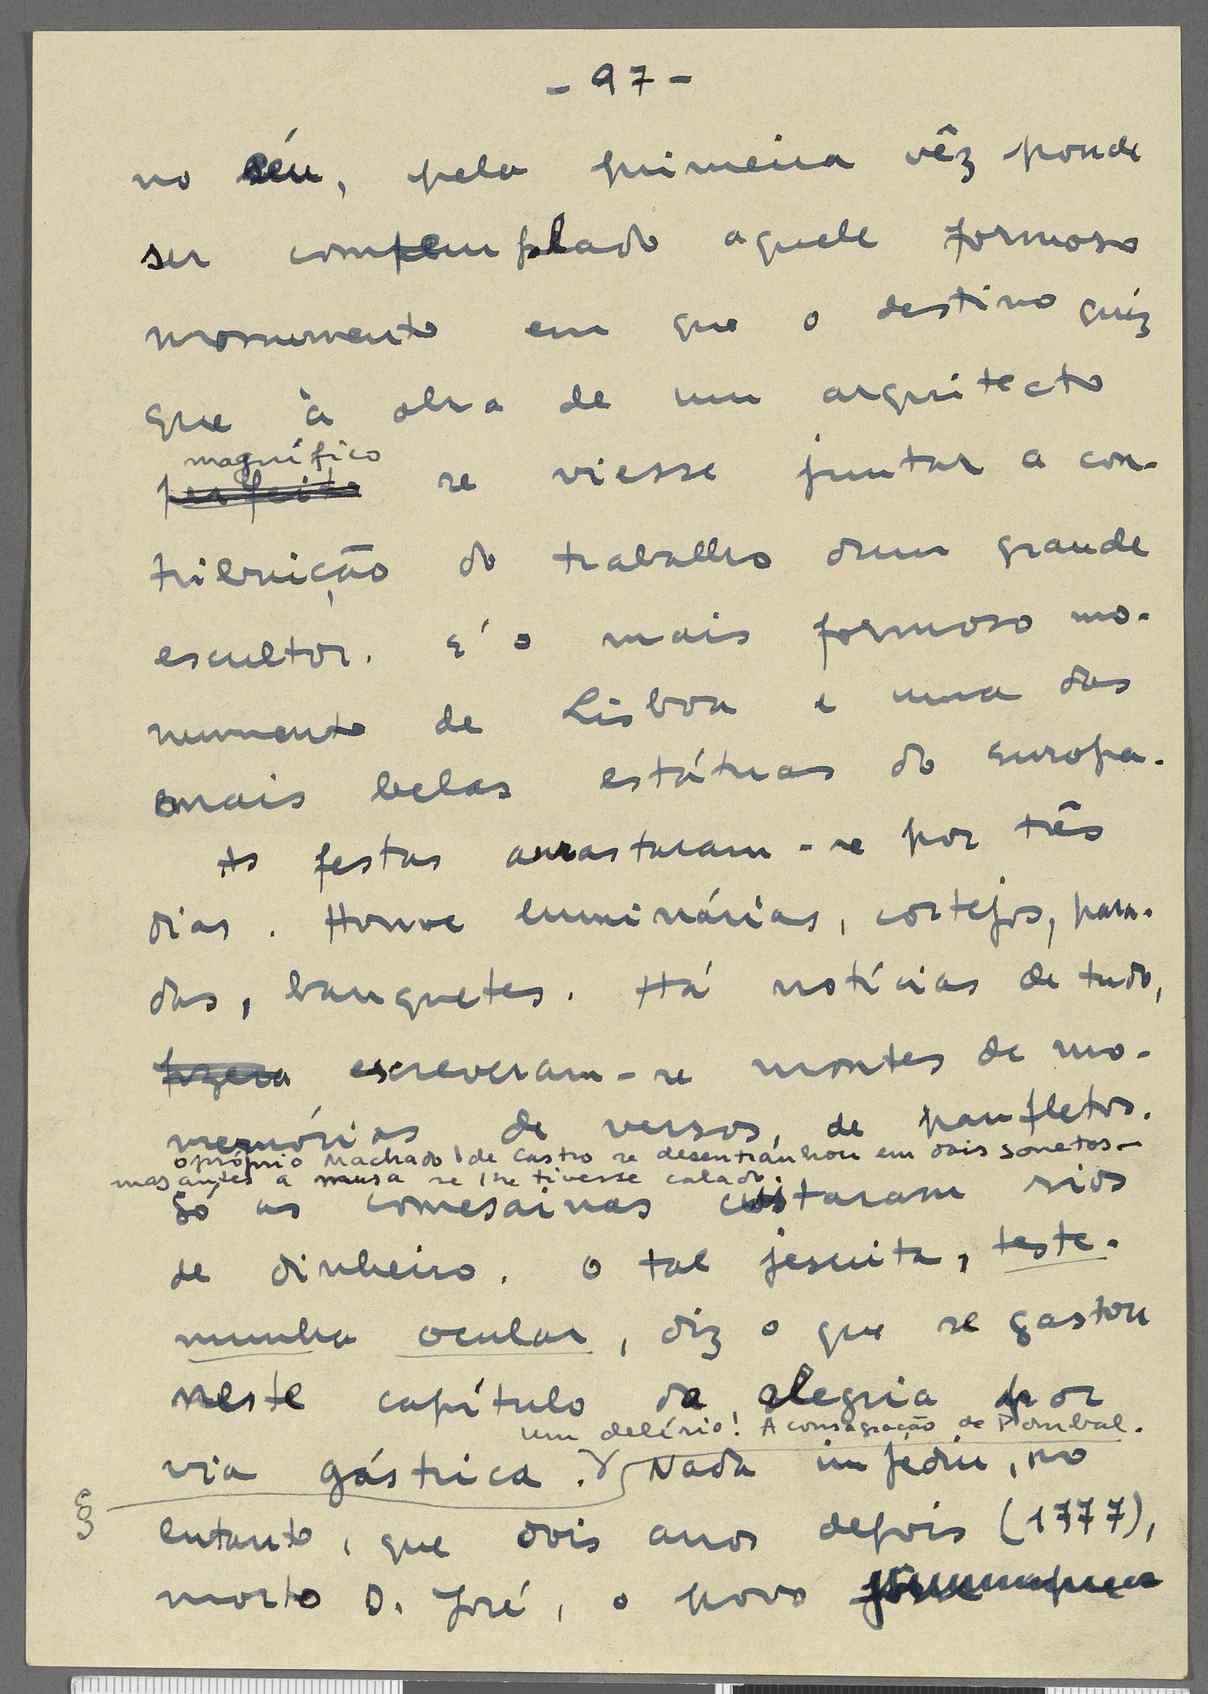 - 97 -
no céu, pela primeira vêz ponde
ser contemplado aquele formoso
monumento em que o destino quiz
que à obra de um arquitecto
magnífico
perfeito se viesse juntar a con-
tribuição do trabalho dum grande
escultor. E' o mais formoso mo-
numento de Lisboa e uma das
mais belas estátuas da Europa.
As festas arrastaram-se por três
dias. Houve luminárias, cortejos, para-
das, banquetes. Há notícias de tudo,
fizera escreveram-se montes de me-
memórias de versos, de panfletos.
o próprio Machado de Castro se desentranhou em dois sonetos -
mas antes a musa se lhe tivesse calado.
Só as comesainas custaram rios
de dinheiro. O tal jesuita, teste-
munha ocular, diz o que se gastou
neste capítulo da alegria por
um delírio! A consagração de Pombal.
via gástrica. Nada impediu, no
§
entanto, que dois anos depois (1777),
morto D. José, o povo